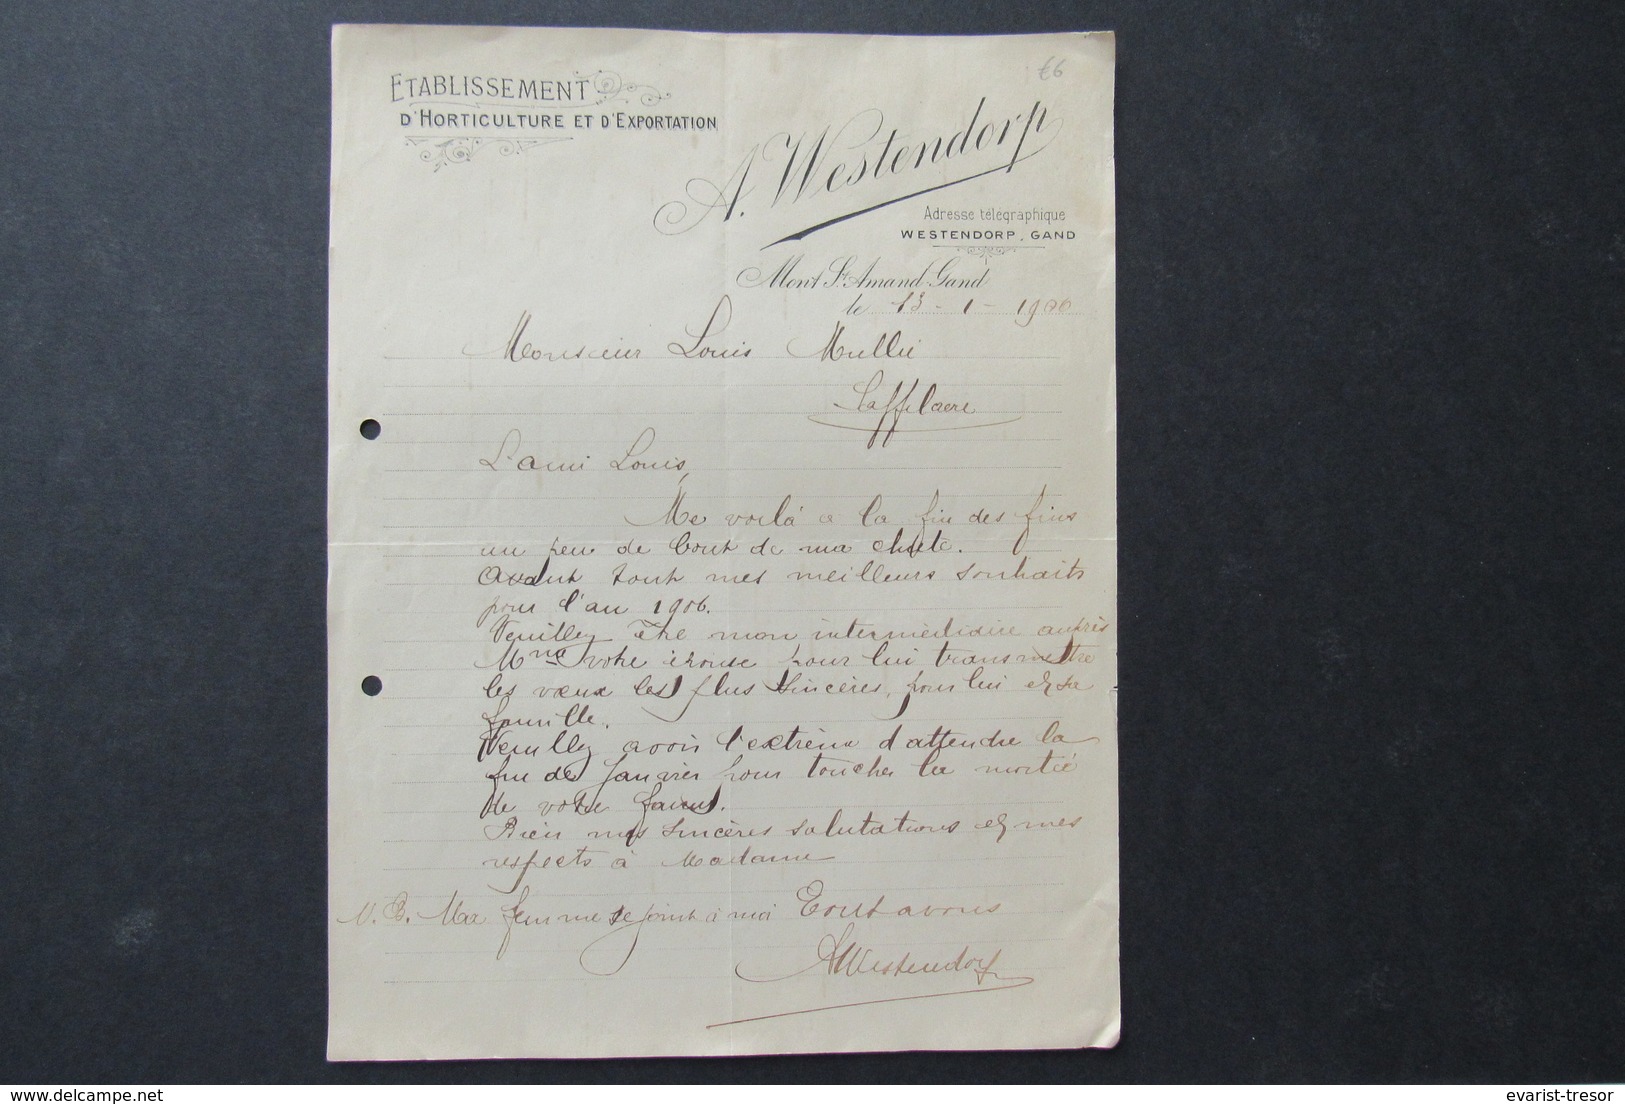 £6
ETABLISSEMENT
D'HORTICULTURE ET D'EXPORTATION
A. Westendorp
Adresse télégraphique
WESTENDORP, GAND
Mont St Amand-Gand
le 13 - 1 - 1906
Monsieur Louis Mullie
Saffelaere
L'ami Louis,
Me voilà a la fin des fins
un peu de bout de ma chute.
Avant tout mes meilleurs souhaits
pour l'an 1906.
Veuillez être mon intermédiaire auprès
Mme votre épouse pour lui transmettre
les vœux les plus sincères, pour lui et sa
famille.
Veuillez avoir l'extrème d'attendre la
fin de Janvier pour toucher la moitié
de votre
Bien mes sincères salutations et mes
respects à Madame
N. B. Ma femme se joint à moi Tout a vous
AWestendorp
evarist-tresor